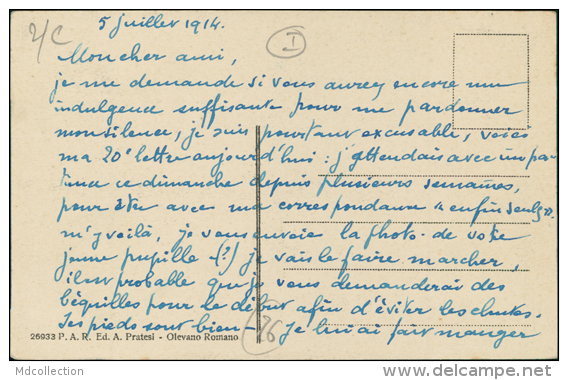 5 juillet 1914.
Mon cher ami,
je me demande si vous aurez encore une
indulgence suffisante pour me pardonner
mon silence, je suis pourtant excusable, voici
ma 20e lettre aujourd'hui : j'attendais avec impa-
tience ce dimanche depuis plusieurs semaines,
pour être avec ma correspondance "enfin seuls".
m'y voilà, je vous envoie la photo de votre
jeune pupille (?) je vais le faire marcher,
il est probable que je vous demanderai des
béquilles pour le début afin d'éviter les chutes.
Ses pieds sont bien - je lui ai fait manger
26933 P. A. R. Ed. A. Pratesi - Olevano Romano
I
76
Mdcollection
http://www.delcampe.net